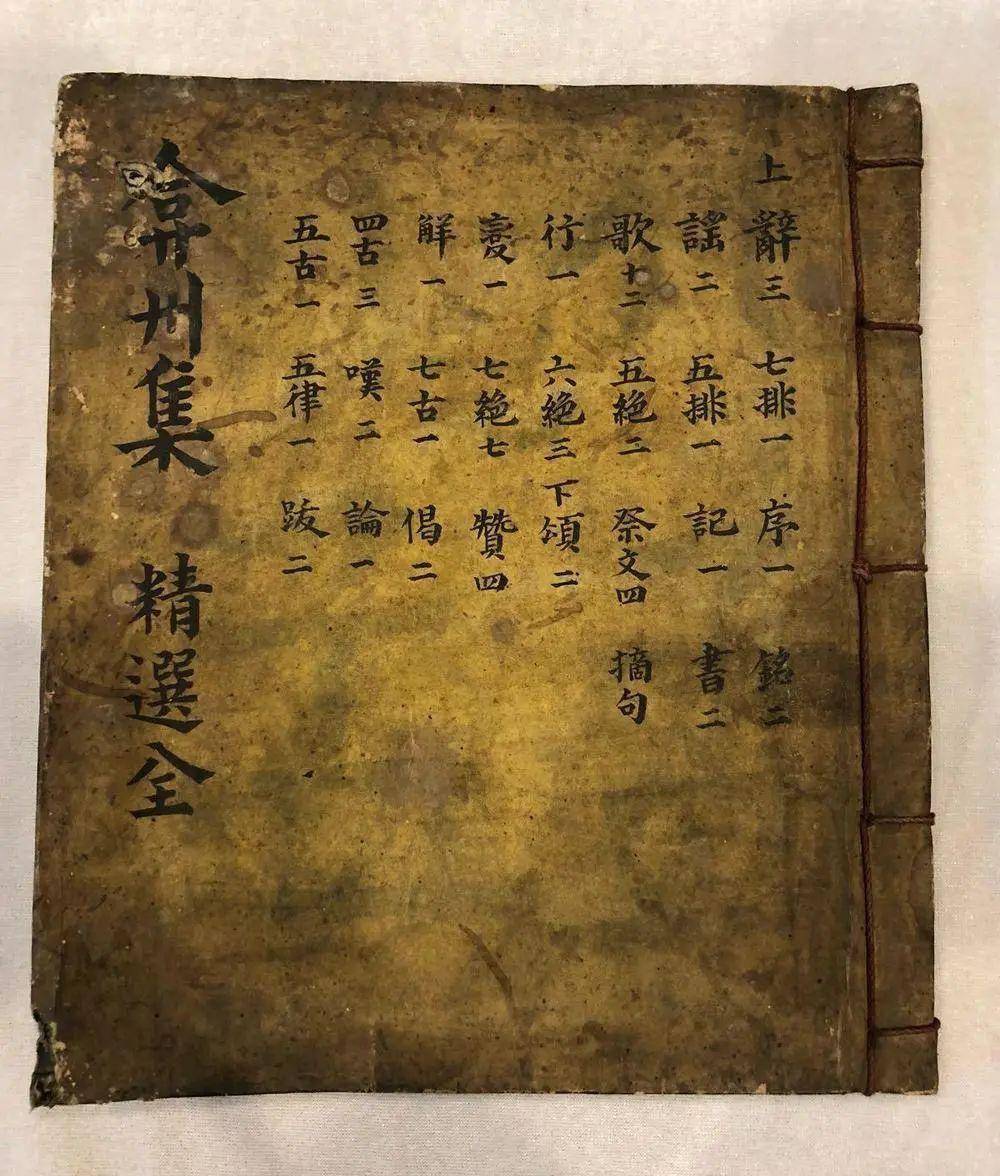 上 辭三 七排一 序一 銘二
謡二 五排一 記一 書二
歌十二 五絶二 祭文四 摘句
行一 六絶三 下頌二
一 七絶七 贊四
觧一 七古一 偈二
四古三 嘆二 論一
五古一 五律一 跋二
弇州集 精選全